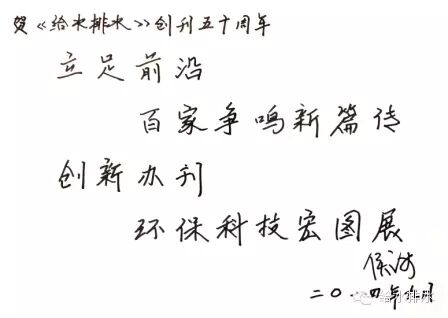 贺《给水排水》创刊五十周年
立足前沿
百家争鸣新篇传
创新办刊
环保科技宏图展
二〇一四年
给水排水